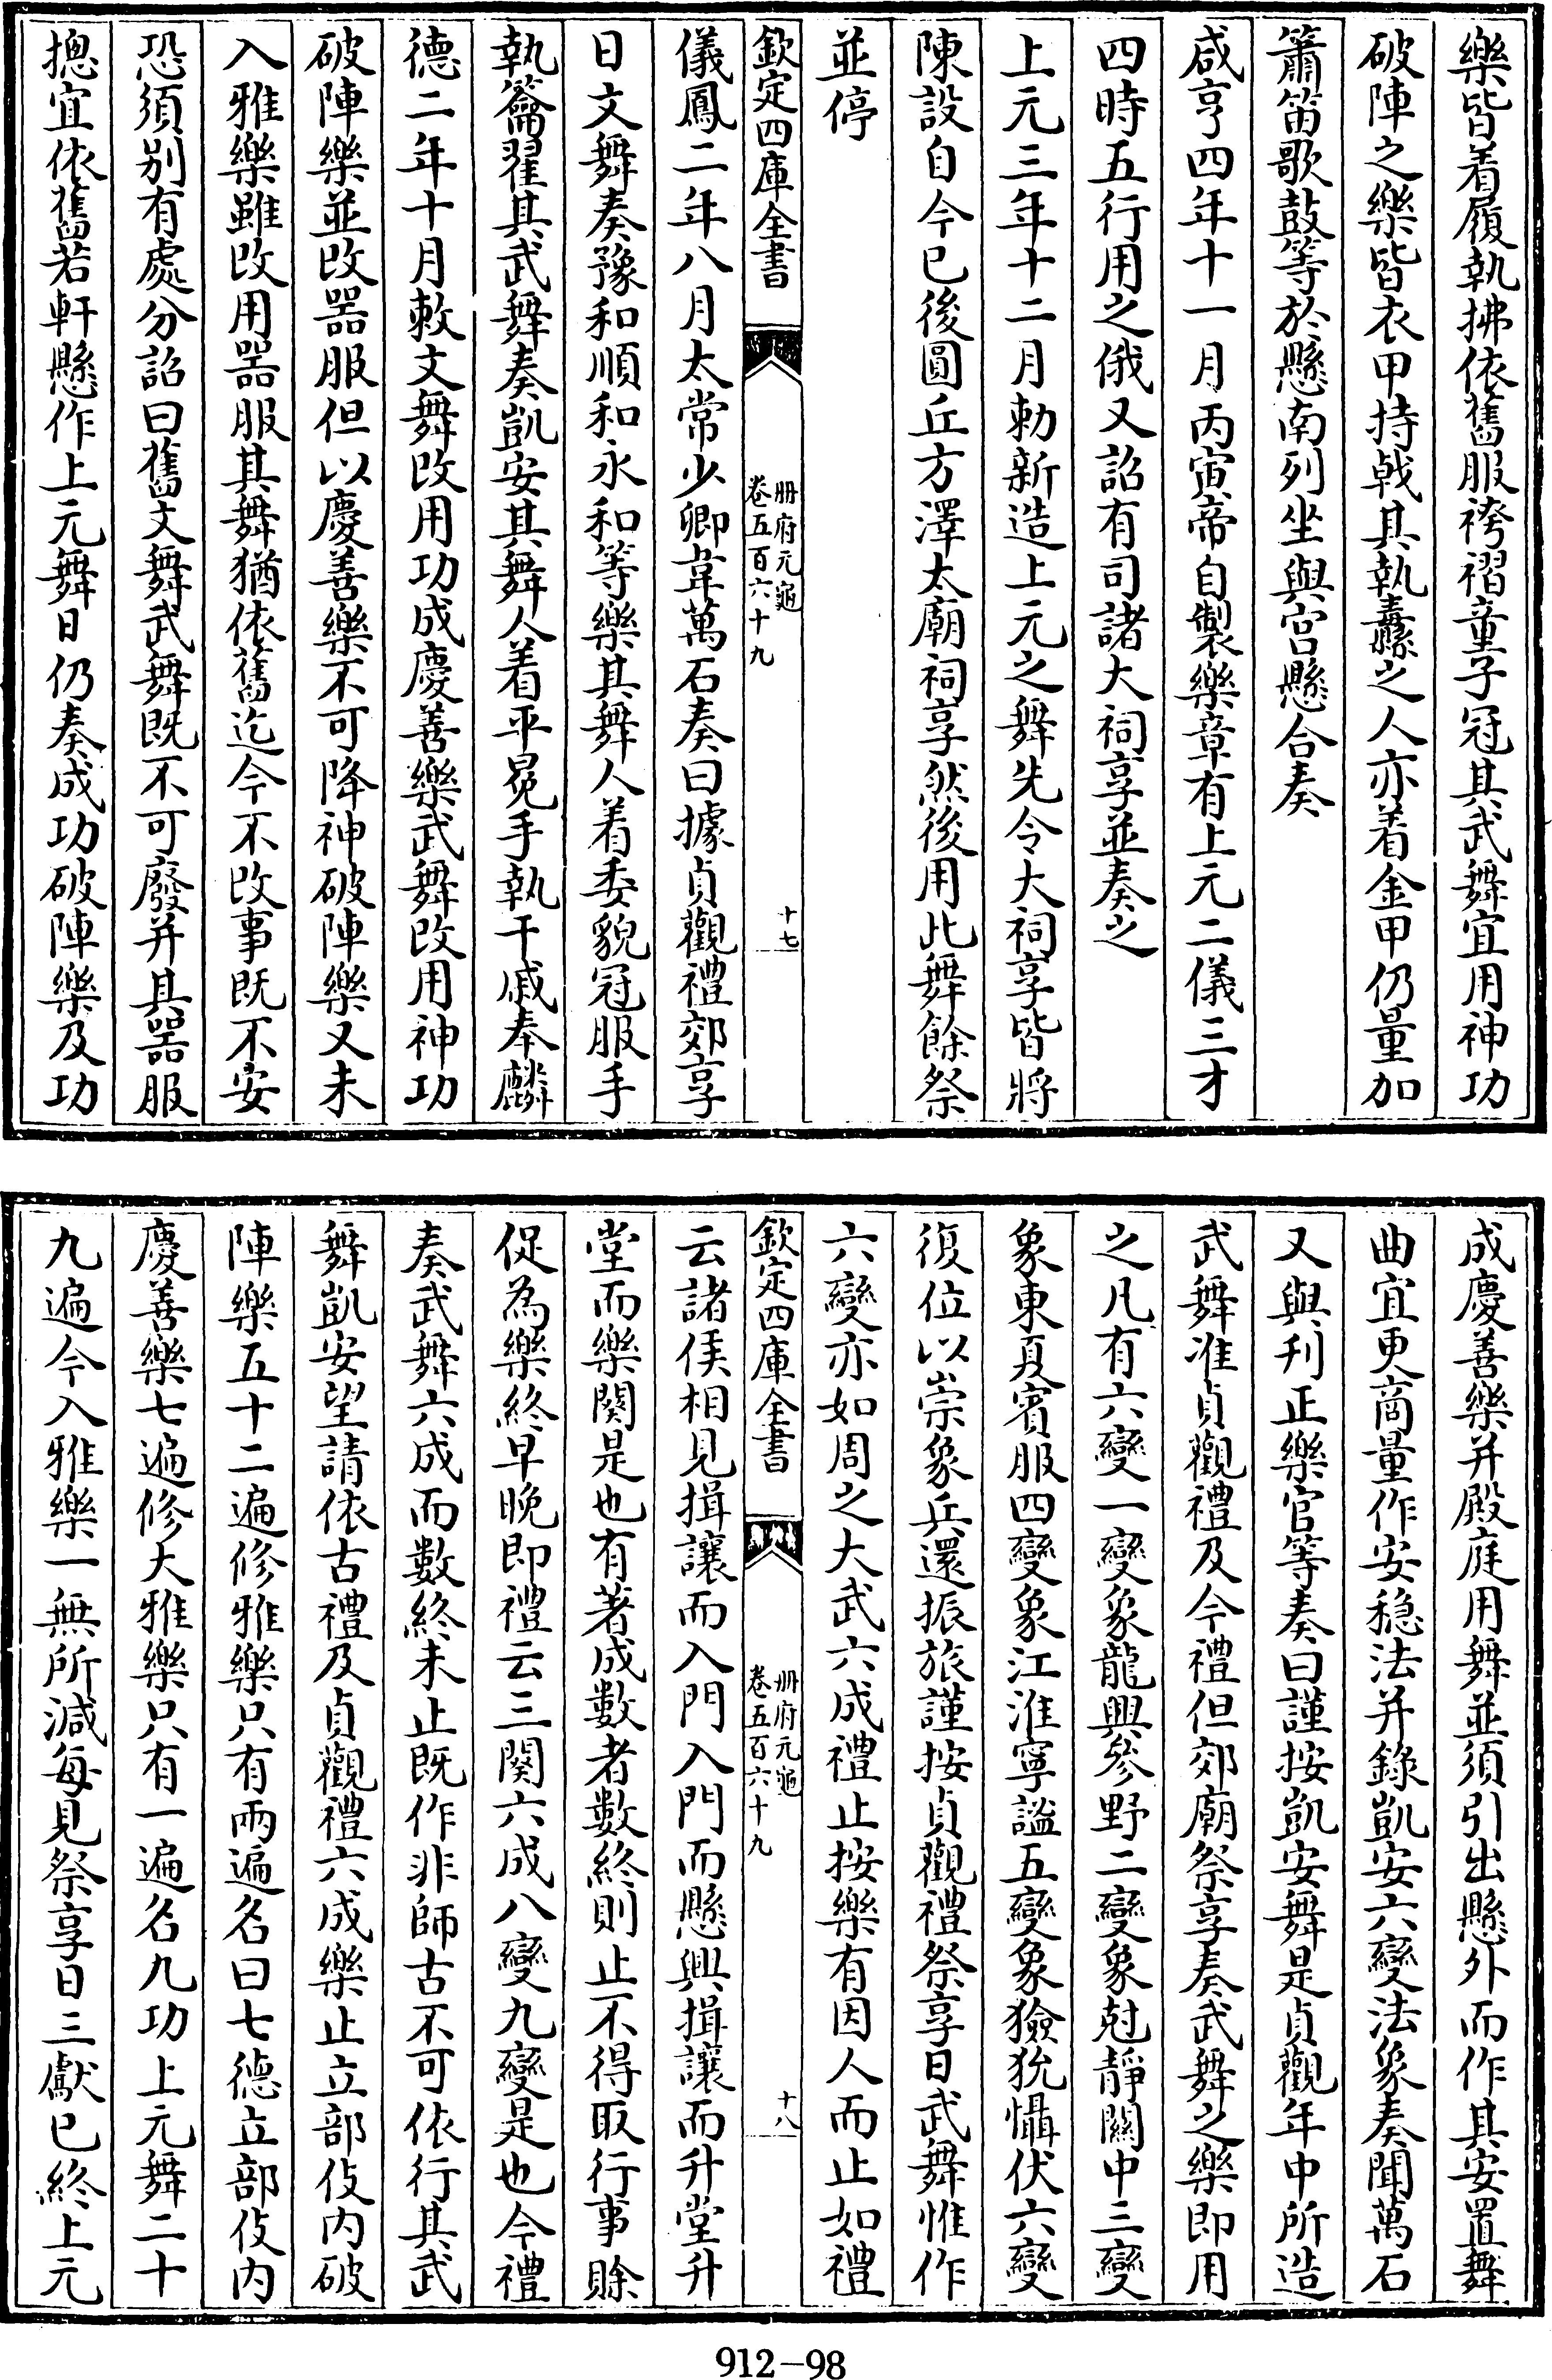 樂皆着履執拂依舊服袴褶童子冠其武舞宜用神功
破陣之樂皆衣甲持戟其執纛之人亦着金甲仍量加
簫笛歌鼓等於懸南列坐與宮懸合奏
咸亨四年十一月丙寅帝自製樂章有上元二儀三才
四時五行用之俄又詔有司諸大祠享並奏之
上元三年十二月勅新造上元之舞先令大祠享皆將
陳設自今已後圓丘方澤太廟祠享然後用此舞餘祭
並停
欽定四庫全書
册府元龜
卷五百六十九
十七
儀鳳二年八月太常少卿韋萬石奏曰據貞觀禮郊享
日文舞奏豫和順和永和等樂其舞人着委貌冠服手
執籥翟其武舞奏凱安其舞人着平冕手執干戚奉麟
德二年十月敕文舞改用功成慶善樂武舞改用神功
破陣樂並改器服但以慶善樂不可降神破陣樂又未
入雅樂雖改用器服其舞猶依舊迄今不改事既不安
恐須别有處分詔曰舊文舞武舞既不可廢并其器服
摠宜依舊若軒懸作上元舞日仍奏成功破陣樂及功
成慶善樂并殿庭用舞並須引出懸外而作其安置舞
曲宜更商量作安穩法并錄凱安六變法象奏聞萬石
又與刋正樂官等奏曰謹按凱安舞是貞觀年中所造
武舞准貞觀禮及今禮但郊廟祭享奏武舞之樂即用
之凡有六變一變象龍興參野二變象尅靜關中三變
象東夏賓服四變象江淮寧謐五變象獫狁懾伏六變
復位以崇象兵還振旅謹按貞觀禮祭享日武舞惟作
六變亦如周之大武六成禮止按樂有因人而止如禮
欽定四庫全書
册府元龜
卷五百六十九
十八
云諸侯相見揖讓而入門入門而懸興揖讓而升堂升
堂而樂闋是也有著成數者數終則止不得取行事賒
促為樂終早晚即禮云三闋六成八變九變是也今禮
奏武舞六成而數終未止既作非師古不可依行其武
舞凱安望請依古禮及貞觀禮六成樂止立部伎内破
陣樂五十二遍修雅樂只有兩遍名曰七德立部伎内
慶善樂七遍修大雅樂只有一遍名九功上元舞二十
九遍今入雅樂一無所減每見祭享日三獻已終上元
912-98